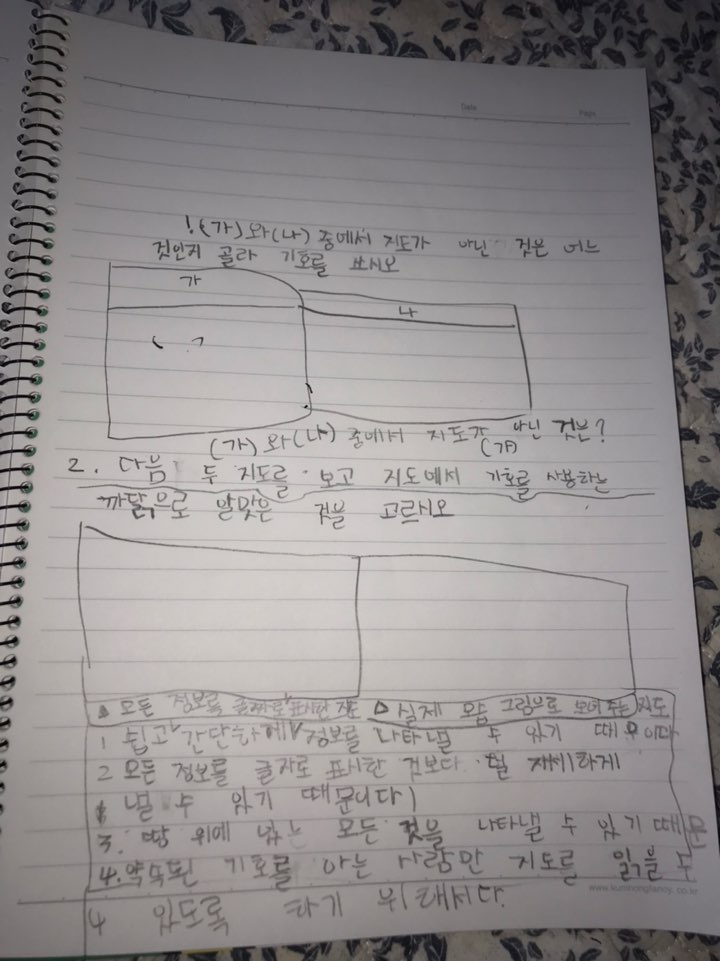 Date Page
1.(가)와(나) 중에서 지도가 아닌 것은 어느
것인지 골라 기호를 쓰시오
가
나
(가)와(나) 중에서 지도가 아닌 것은?
(가)
2. 다음 두 지도를 보고 지도에서 기호를 사용하는
까닭으로 알맞은 것을 고르시오
모든 정보를 글자로 표시한 지도 △ 실제 모습 그림으로 보여 주는 지도
1 쉽고 간단하게 정보를 나타낼 수 있기 때문이다
2 모든 정보를 글자로 표시한 것보다 덜 자세하게
낼 수 있기 때문니다
3. 땅 위에 있는 모든 것을 나타낼 수 있기 때문
4. 약속된 기호를 아는 사람만 지도를 읽을
www.kumhongfancy.co.kr
4 있도록 하기